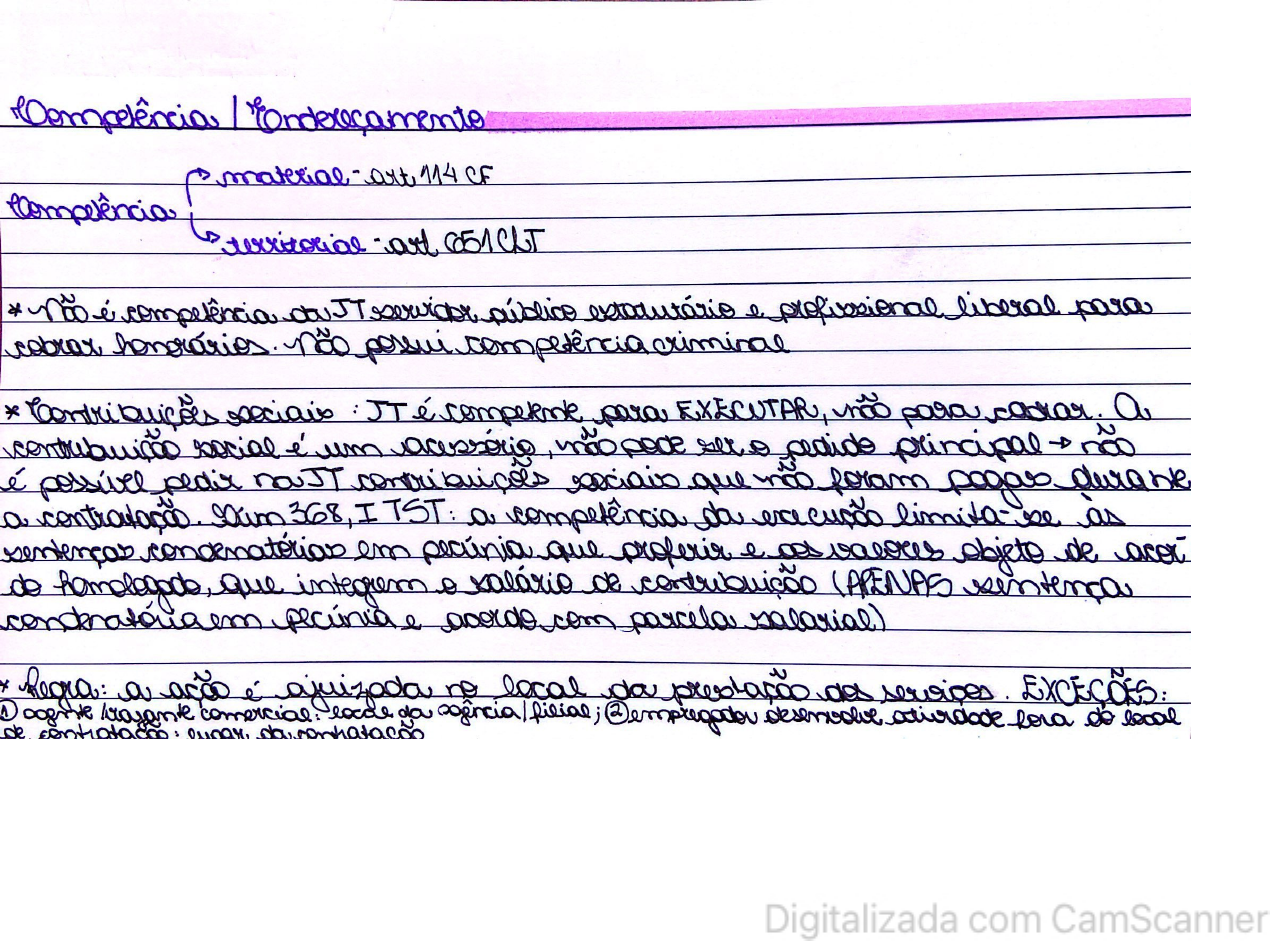 Competência / Endereçamento
material - art 114 CF
Competência
territorial - art 651 CLT
* Não é competência da JT servidor público estatutário e profissional liberal para
cobrar honorários. Não possui competência criminal
* Contribuições sociais: JT é competente para EXECUTAR, não para cobrar. A
contribuição social é um acessório, não pode ser o pedido principal → não
é possível pedir na JT contribuições sociais que não foram pagas durante
a contratação. Súm 368, I TST: a competência da execução limita-se às
sentenças condenatórias em pecúnia que proferir e aos valores objeto de acor
do homologado, que integrem o salário de contribuição (APENAS sentença
condenatória em pecúnia e acordo com parcela salarial)
* Regra: a ação é ajuizada no local da prestação dos serviços. EXCEÇÕES:
① agente/viajante comercial: local da agência/filial; ② empregador desenvolve atividade fora do local
de contratação: lugar da contratação
Digitalizada com CamScanner